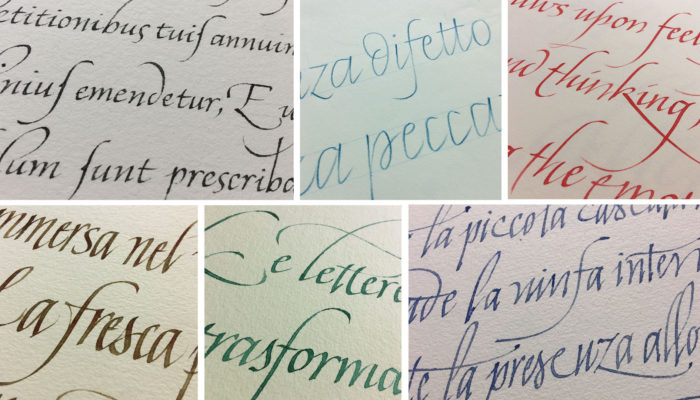 etitionibus tuiſ annuin
niuſ emendetur, E u
lum ſunt prescriba
za difetto
ca pecca
ws upon feel
nd thinking
g the emo
mmersa nel
La fresca p
Le lettere
rasforma
la piccola cascat
ade la ninfa inter
te la presenza allo